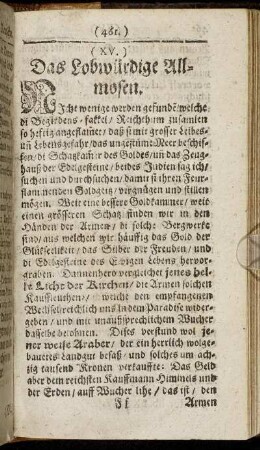 (481.)
(XV.)
Das Lobwürdige All-
mosen.
NIcht wenige werden gefundẽ/welche
di Begirdens-fakkel/Reichthum zusamlen
so heftig angeflammet/daß si mit grosser Leibes-
uñ Lebensgefahr/das ungestüme Meer beschif-
fen/di Schatzkam̃er des Goldes/uñ das Zeug-
hauß der Edilgesteine/beides Indien sag ich/
suchen und durchsuchen/damit si ihren Feur-
flammenden Goldgeitz/vergnügen und stillen
mögen. Weit eine bessere Goldkammer/weit
einen grösseren Schatz finden wir in den
Händen der Armen/di solche Bergwerke
sind/aus welchen wir häuffig das Gold der
Glükseeligkeit/das Silber der Freuden/und
di Edilgesteine des Ewigen Lebens hervor-
graben. Dannenhero vergleichet jenes helle
Licht der Kirchen/die Armen solchen
Kaufleuthen/welche den empfangenen
Wechsel reichlich uns in dem Paradise wider-
geben/und mit unaussprechlichem Wucher
daselbst belohnen. Dises verstund wol je-
ner weise Araber/der ein herrlich wolge-
bauetes Landgut besaß/und solches um ach-
zig tausend Kronen verkauffte: Das Geld
aber dem reichsten Kauffmann Himmels und
der Erden/auff Wucher lihe/das ist/den
Armen